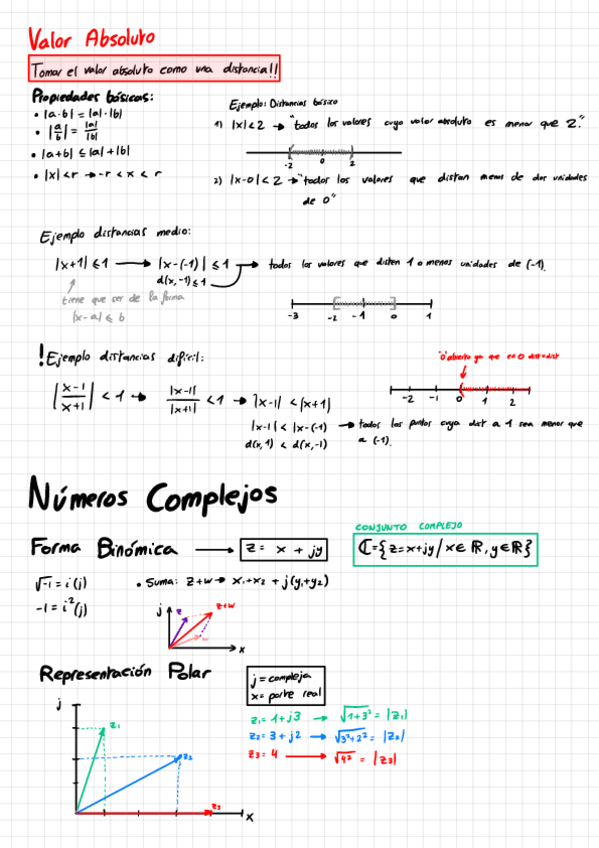 Valor Absoluto
Tomar el valor absoluto como una distancia!!
Propiedades básicas:
• |a·b| = |a|·|b|
• |a/b| = |a|/|b|
• |a+b| ≤ |a|+|b|
• |x| < r → -r < x < r
Ejemplo: Distancias básico
1) |x| < 2 → "todos los valores cuyo valor absoluto es menor que 2."
-2 0 2
2) |x-0| < 2 → "todos los valores que distan menos de dos unidades
de 0"
Ejemplo distancias medio:
|x+1| ≤ 1 → |x-(-1)| ≤ 1 → todos los valores que disten 1 o menos unidades de (-1).
d(x,-1) ≤ 1
tiene que ser de la forma
|x-a| ≤ b
-3 -2 -1 0 1
! Ejemplo distancias difícil:
"0" abierto ya que en 0 dist=dist
|x-1/x+1| < 1 → |x-1|/|x+1| < 1 → |x-1| < |x+1|
-2 -1 0 1 2
|x-1| < |x-(-1)| → todos los puntos cuya dist a 1 sea menor que
d(x,1) < d(x,-1) a (-1).
Números Complejos
CONJUNTO COMPLEJO
Forma Binómica → z = x + jy
ℂ={z=x+jy / x∈ℝ, y∈ℝ}
√-1 = i (j)
-1 = i² (j)
• Suma: z+w → x₁+x₂ + j(y₁+y₂)
j z z+w w x
Representación Polar
j = compleja
x = parte real
z₁ = 1+j3 → √1+3² = |z₁|
z₂ = 3+j2 → √3²+2² = |z₂|
z₃ = 4 → √4² = |z₃|
j
z₁
z₂
z₃
x